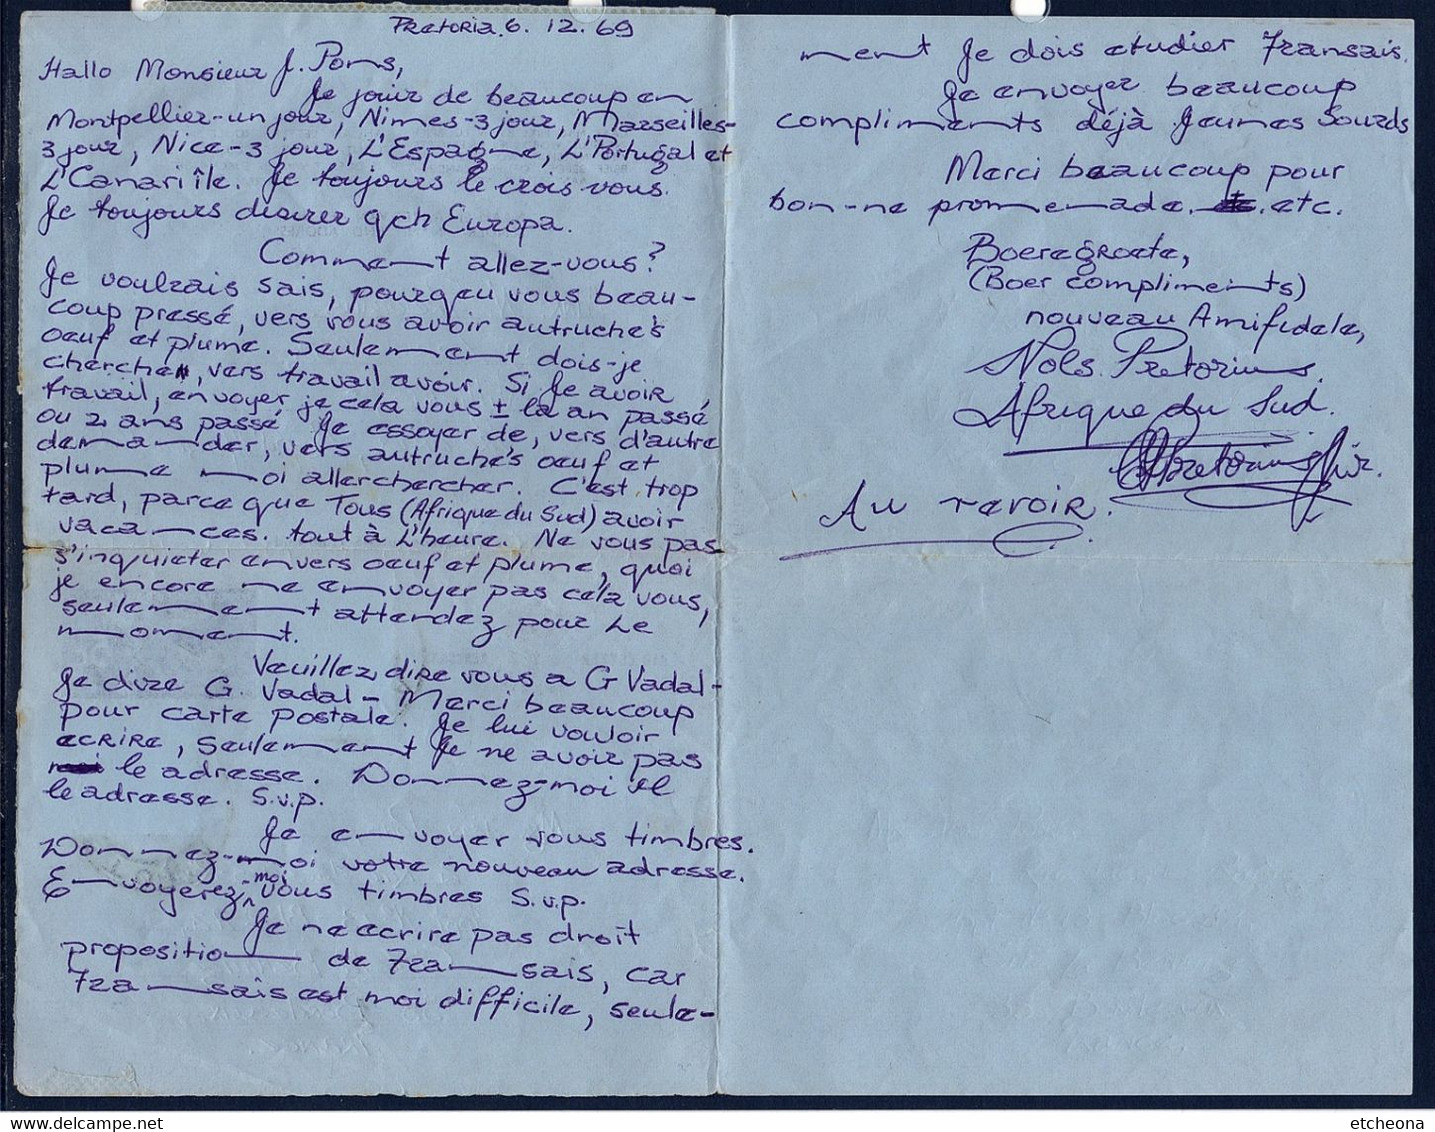 Pretoria 6. 12. 69
Hallo Monsieur J. Pons,
Je jouir de beaucoup en
Montpellier-un jour, Nimes-3 jour, Marseilles-
3 jour, Nice-3 jour, L'Espagne, L'Portugal et
L'Canari île. Je toujours le crois vous.
Je toujours disirer qch Europa.
Comment allez-vous?
Je voulrais sais, pourqeu vous beau-
coup pressé, vers vous avoir autruche's
oeuf et plume. Seulement dois-je
cherche, vers travail avoir. Si Je avoir
travail, envoyer je cela vous ± la an passé
ou 2 ans passé Je essoyer de, vers d'autre
demander, vers autruche's oeuf et
plume moi allerchercher. C'est trop
tard, parce que Tous (Afrique du Sud) avoir
vacances. tout à L'heure. Ne vous pas
s'inquieter envers oeuf et plume, quoi
je encore ne envoyer pas cela vous,
seulement attendez pour Le
moment.
Veuillez dire vous a G Vadal-
Je dire G. Vadal - Merci beaucoup
pour carte postale. Je lui vouloir
ecrire, seulement Je ne avoir pas
le adresse. Donnez-moi
le adresse. S.v.p.
Je envoyer vous timbres.
Donnez-moi votre nouveau adresse.
Envoyerez-moi vous timbres S.v.p.
Je ne ecrire pas droit
proposition de Fransais, car
Fransais est moi difficile, seule-
ment Je dois etudier Fransais.
Je envoyer beaucoup
compliments déjà Jeunes Sourds
Merci beaucoup pour
bon-ne promenade. etc.
Boeregroete,
(Boer compliments)
nouveau Amifidele,
Nols. Pretorius.
Afrique du Sud.
Au revoir.
etcheona